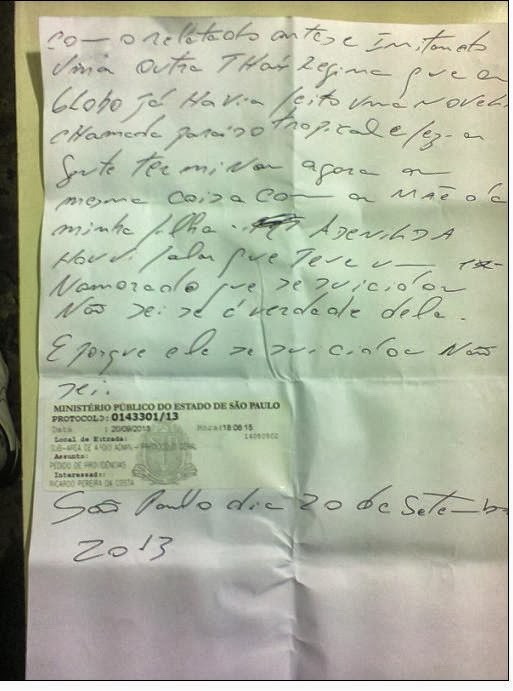 com o relatado antes e Imitando
Uma outra THais Regina que a
Globo já Havia feito uma novela
cHamada paraizo tropical e fez a
gente terminar agora a
mesma coiza com a MÃE da
minha filha ADENILDA
Houvi falar que teve um
Namorado que se suicidou
Não sei se é verdade dela.
E porque ele se suicidou Não
sei.
MINISTÉRIO PÚBLICO DO ESTADO DE SÃO PAULO
PROTOCOLO: 0143301/13
Data : 20/09/2013 Hora: 18:06:15
Local de Entrada: 14050902
SUB-ÁREA DE APOIO ADMIN - PROTOCOLO GERAL
Assunto:
PEDIDO DE PROVIDÊNCIAS
Interessado:
RICARDO PEREIRA DA COSTA
São Paulo dia 20 de Setembro
2013